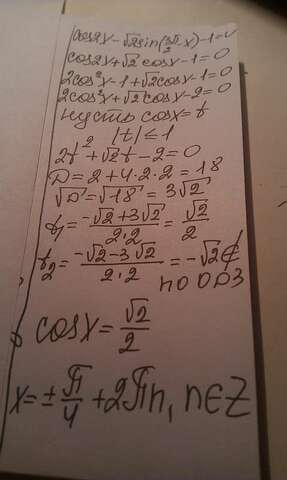 cos2x-√2sin(3π/2-x)-1=0
cos2x+√2 cosx-1=0
2cos²x-1+√2cosx-1=0
2cos²x+√2 cosx-2=0
пусть cosx=t
|t|≤1
2t²+√2t-2=0
D=2+4·2·2=18
√D=√18=3√2
t₁=(-√2+3√2)/(2·2)=√2/2
t₂=(-√2-3√2)/(2·2)=-√2∉
по ОДЗ
cosx=√2/2
x=±π/4+2πn, n∈Z